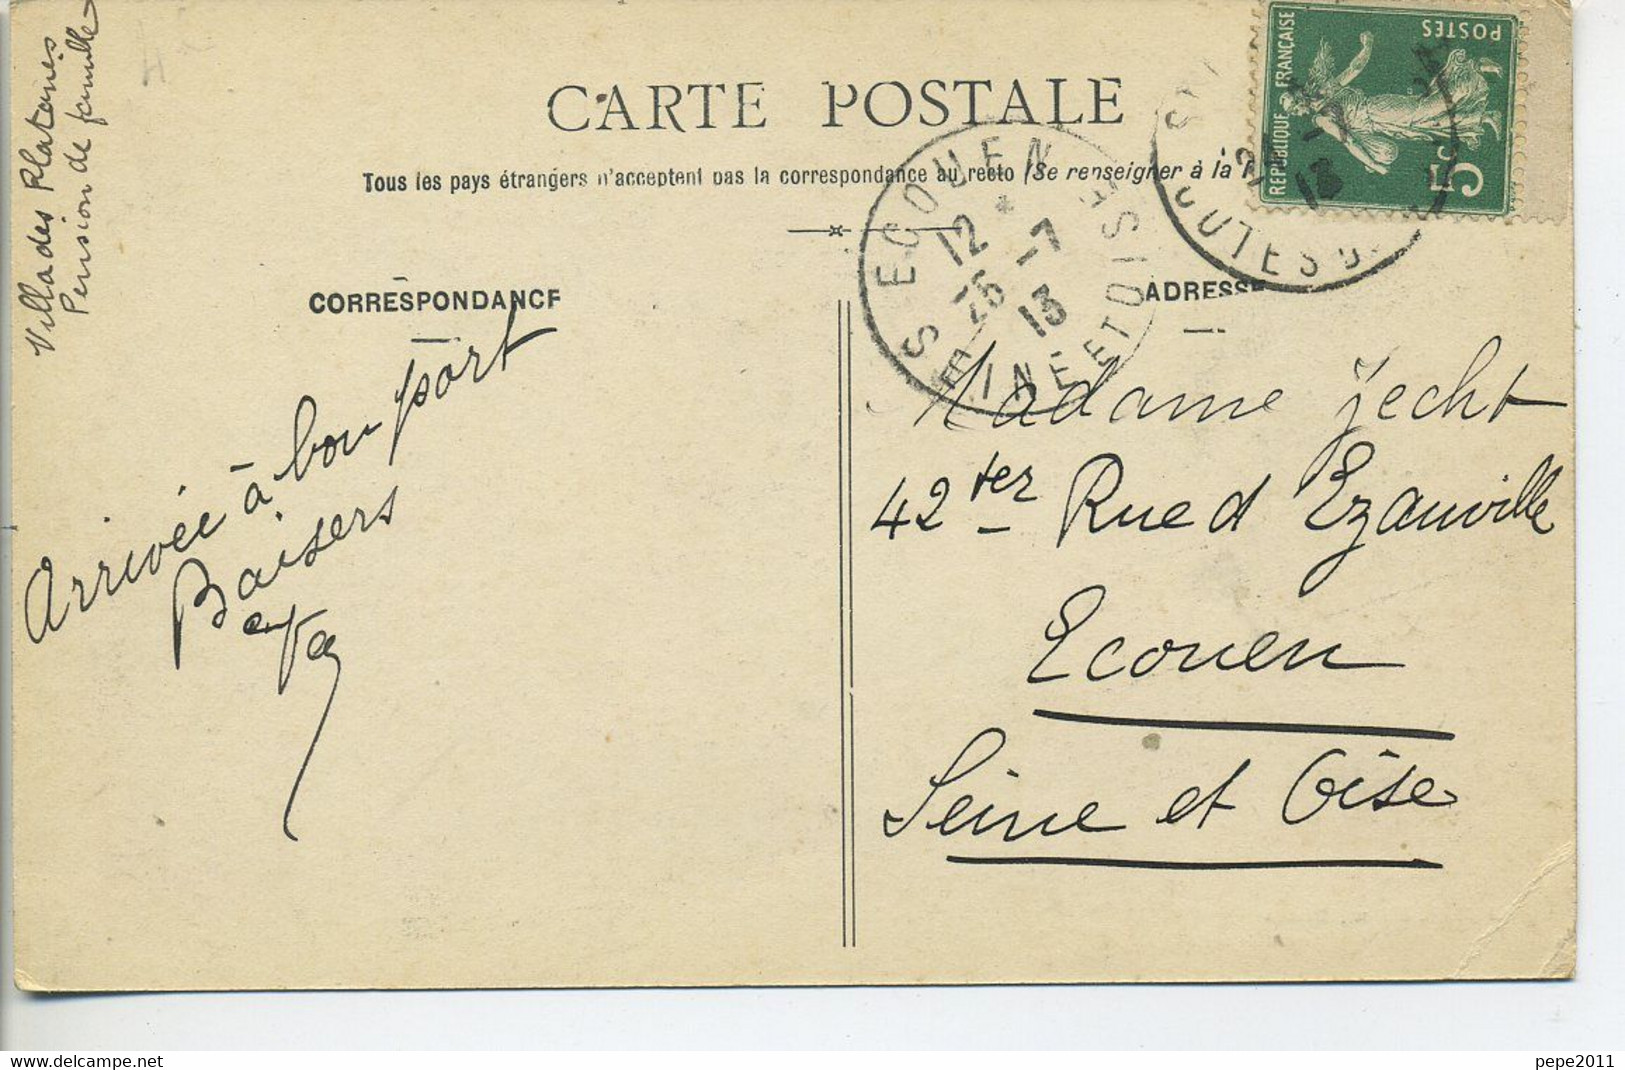 Villa des Platanes
Pension de famille
CARTE POSTALE
Tous les pays étrangers n'acceptent pas la correspondance au recto (Se renseigner à la
CORRESPONDANCE
ADRESSE
REPUBLIQUE FRANÇAISE
POSTES
5c
ECOUEN
12 *
25 -7
13
SEINE ET OISE
-7
13
Arrivée à bon port
Baisers
Madame Jecht
42 ter Rue d Ezanville
Ecouen
Seine et Oise
delcampe.net
pepe2011